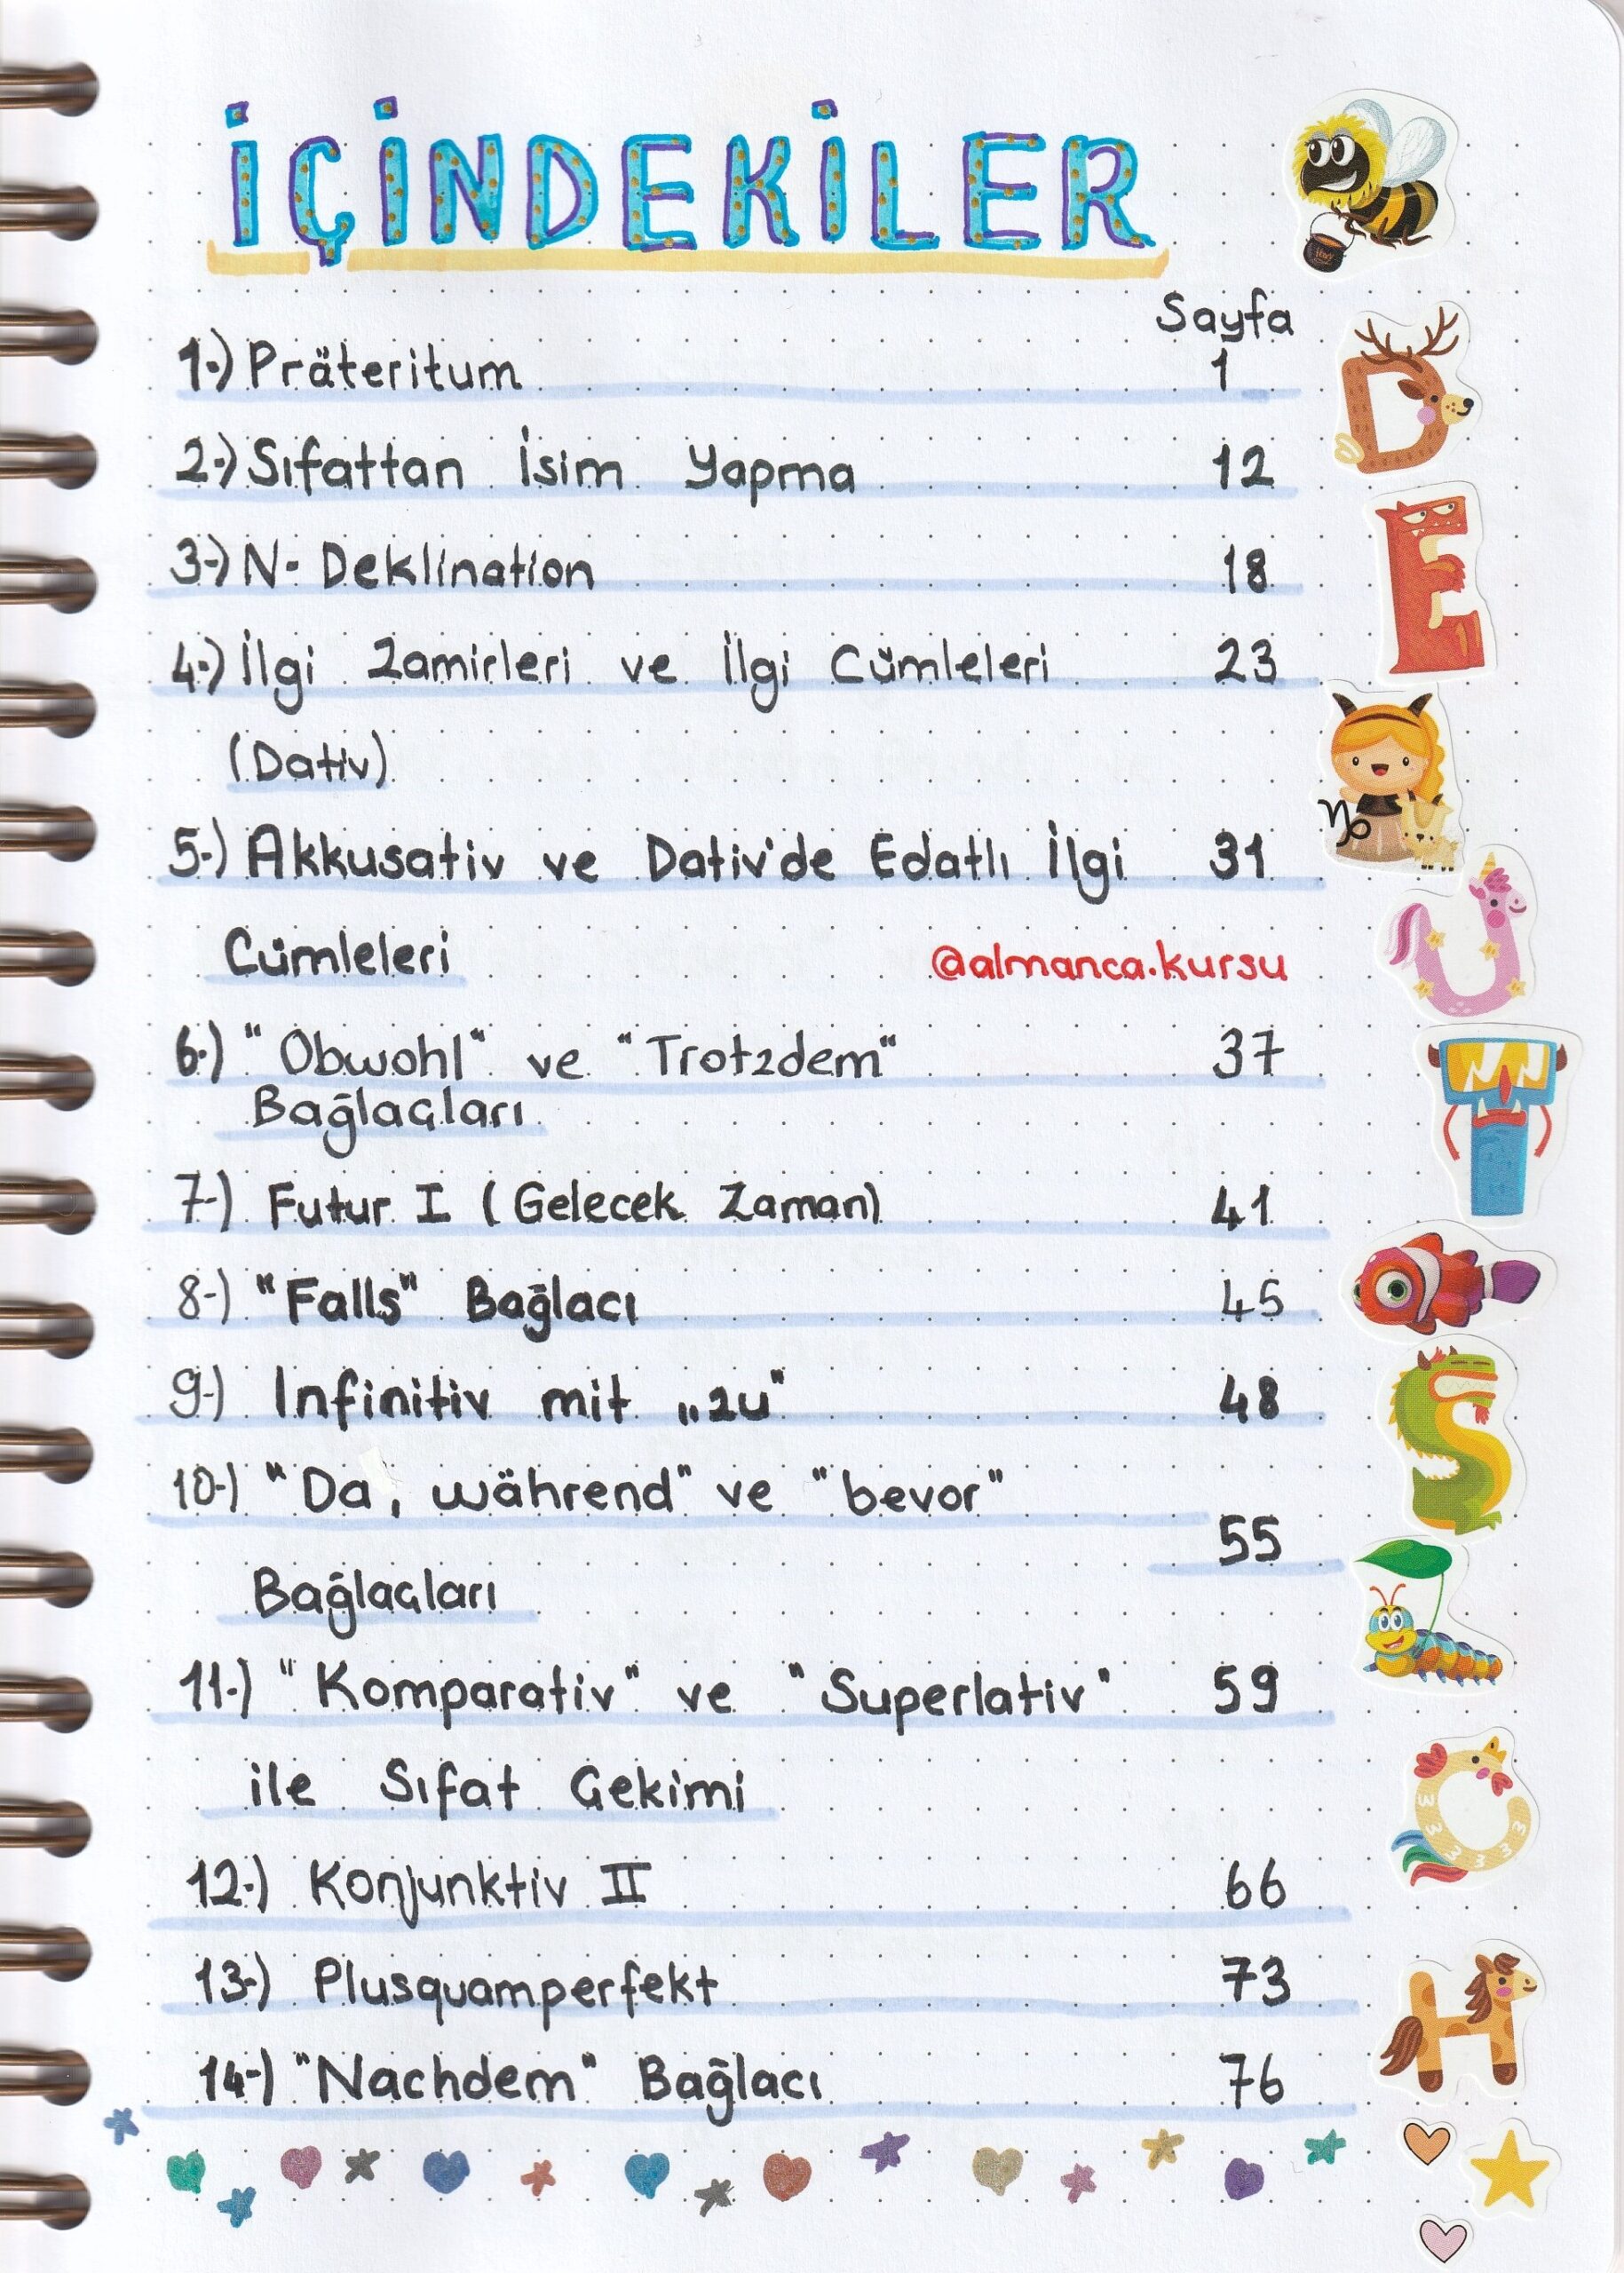 İÇİNDEKİLER
Sayfa
1-) Präteritum 1
2-) Sıfattan İsim Yapma 12
3-) N- Deklination 18
4-) İlgi Zamirleri ve İlgi Cümleleri 23
(Dativ)
5-) Akkusativ ve Dativ'de Edatlı İlgi 31
Cümleleri
@almanca.kursu
6-) "Obwohl" ve "Trotzdem" 37
Bağlaçları
7-) Futur I (Gelecek Zaman) 41
8-) "Falls" Bağlacı 45
9-) Infinitiv mit „zu" 48
10-) "Da, während" ve "bevor"
55
Bağlaçları
11-) "Komparativ" ve "Superlativ" 59
ile Sıfat Çekimi
12-) Konjunktiv II 66
13-) Plusquamperfekt 73
14-) "Nachdem" Bağlacı 76
D
E
U
T
S
C
H